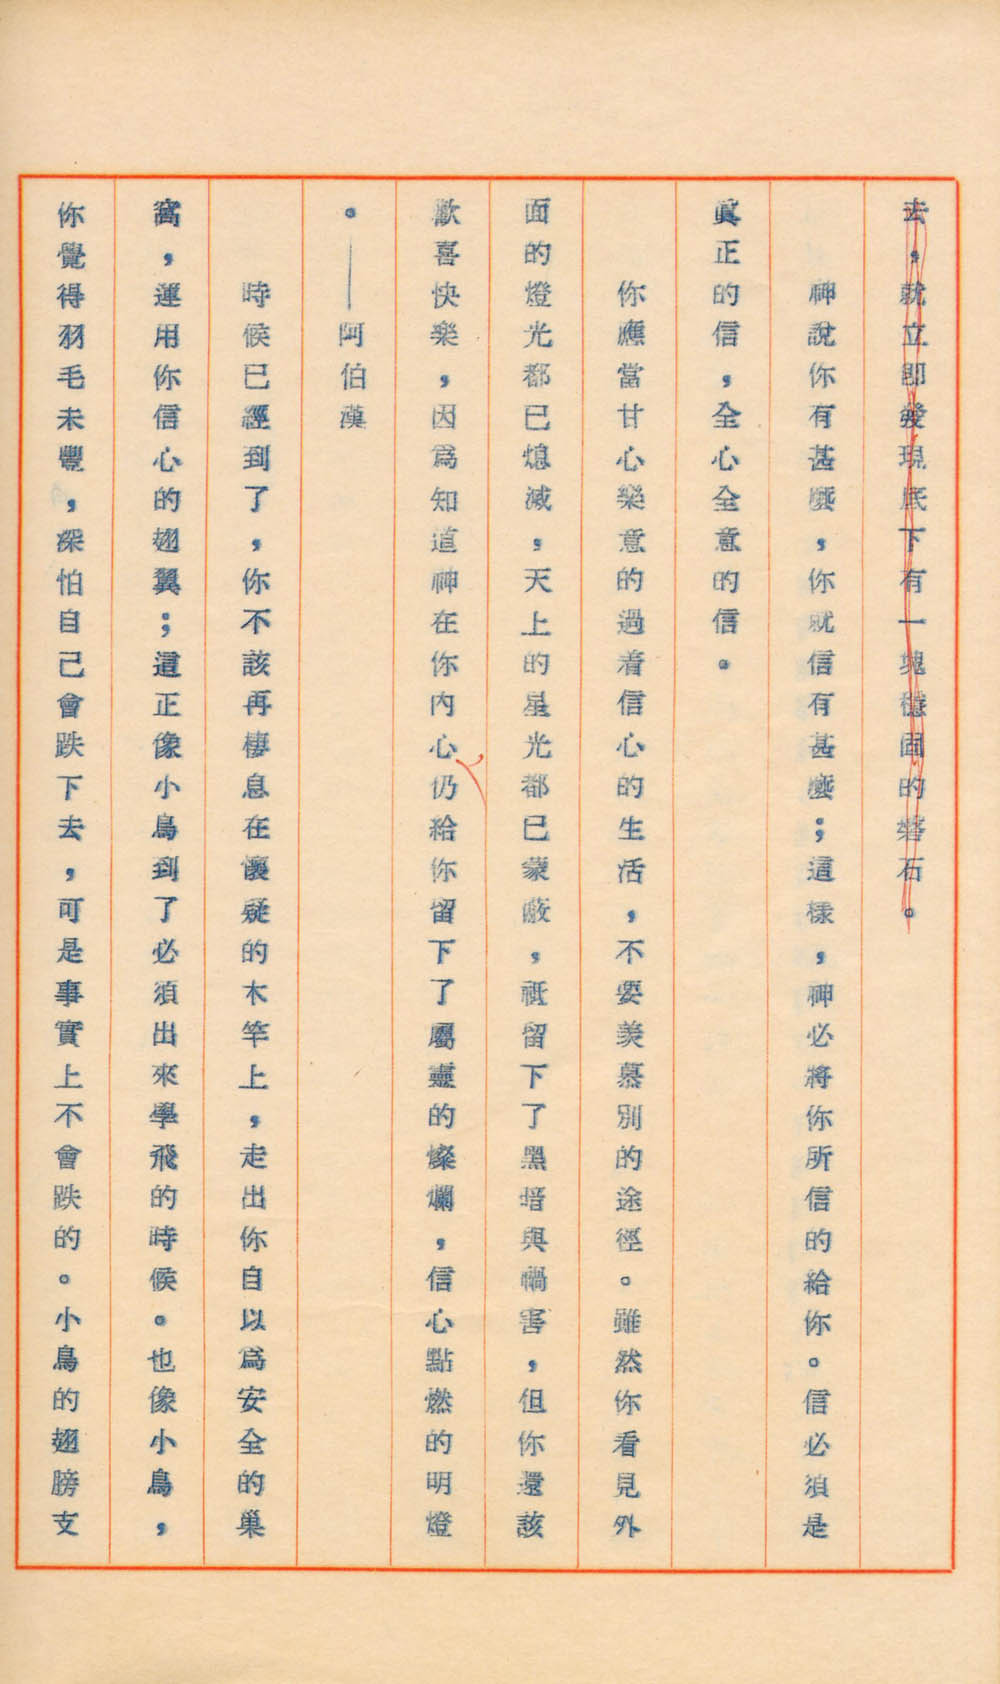 去，就立卽發現底下有一塊穩固的磐石。
神說你有甚麼，你就信有甚麼；這樣，神必將你所信的給你。信必須是
眞正的信，全心全意的信。
你應當甘心樂意的過着信心的生活，不要羨慕別的途徑。雖然你看見外
面的燈光都已熄滅，天上的星光都已蒙蔽，祗留下了黑暗與禍害，但你還該
歡喜快樂，因爲知道神在你內心仍給你留下了屬靈的燦爛，信心點燃的明燈
。——阿伯漢
時候已經到了，你不該再棲息在懷疑的木竿上，走出你自以爲安全的巢
窩，運用你信心的翅翼；這正像小鳥到了必須出來學飛的時候。也像小鳥，
你覺得羽毛未豐，深怕自己會跌下去，可是事實上不會跌的。小鳥的翅膀支